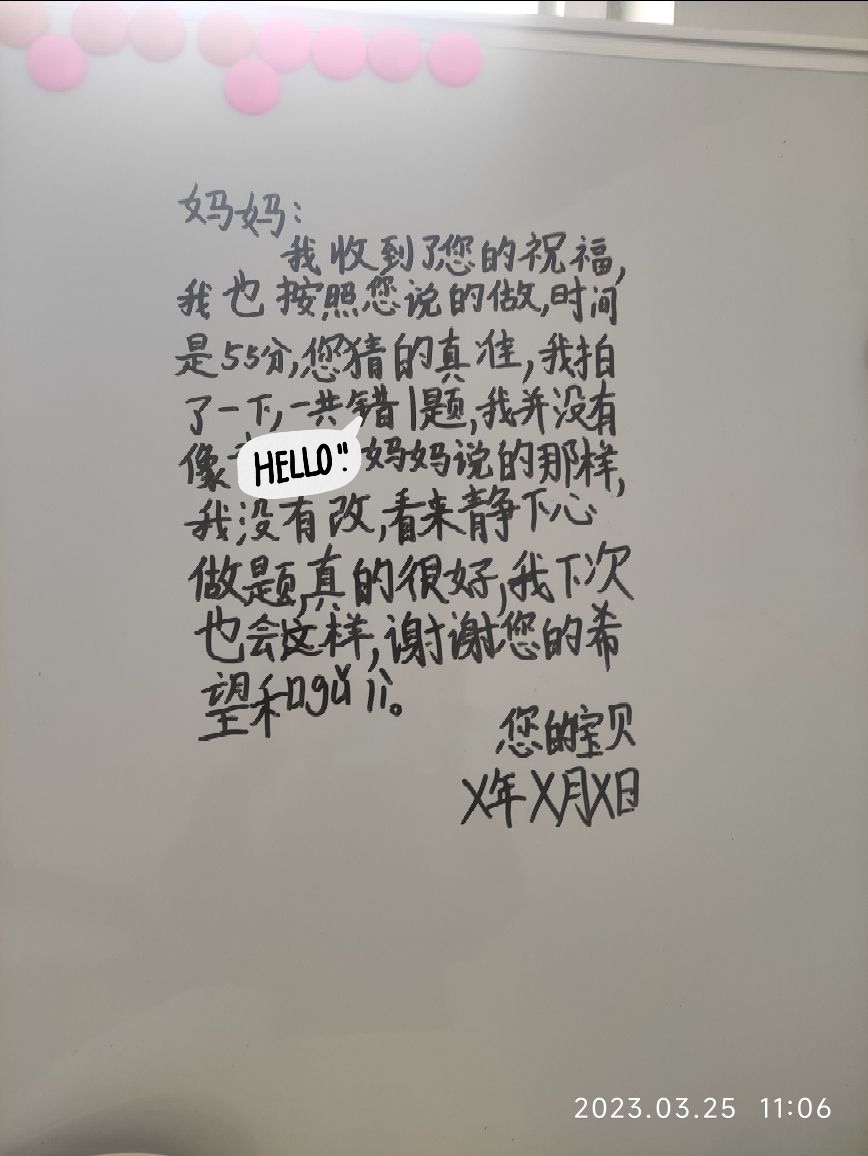 妈妈：
我收到了您的祝福,
我也按照您说的做,时间
是55分,您猜的真准,我拍
了一下,一共错1题,我并没有
像
HELLO"
妈妈说的那样,
我没有改,看来静下心
做题,真的很好,我下次
也会这样,谢谢您的希
望和gǔ lì。
您的宝贝
X年X月X日
2023.03.25 11:06